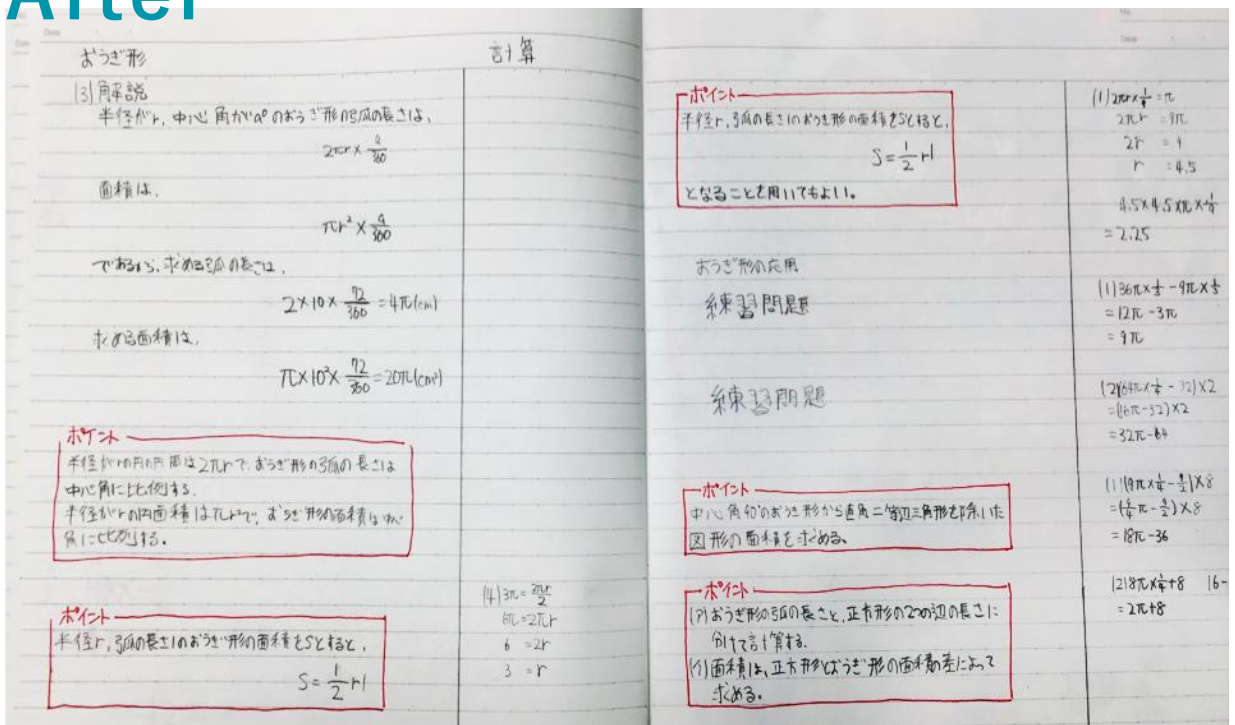 After
Date
おうぎ形
計算
(3)解説
半径がr,中心角がa°のおうぎ形の弧の長さは、
2πr×a/360
面積は、
πr²×a/360
であるから、求める弧の長さは、
2×10×72/360=4π(cm)
求める面積は、
π×10²×72/360=20π(cm²)
ポイント
半径がrの円の円周は2πrで、おうぎ形の弧の長さは
中心角に比例する。
半径がrの円面積はπr²で、おうぎ形の面積は中心
角に比例する。
ポイント
半径r,弧の長さlのおうぎ形の面積をSとすると、
S=1/2rl
(4)3π=2πr/2
6π=2πr
6 =2r
3 =r
No.
Date
ポイント
半径r,弧の長さlのおうぎ形の面積をSとすると、
S=1/2rl
となることを用いてもよい。
おうぎ形の応用
練習問題
練習問題
ポイント
中心角90°のおうぎ形から直角二等辺三角形を除いた
図形の面積を求める。
ポイント
(ア)おうぎ形の弧の長さと,正方形の2つの辺の長さに
分けて計算する。
(イ)面積は、正方形とおうぎ形の面積の差によって
求める。
2πr =9π
r =4.5
=2.25
(1)36π×1/3-9π×1/3
=12π-3π
=9π
(2)(64π×1/4-32)×2
=(16π-32)×2
=32π-64
(1)(9π×1/4-9/2)×8
=(9/4π-9/2)×8
=18π-36
(2)8π×1/4+8 16-
=2π+8